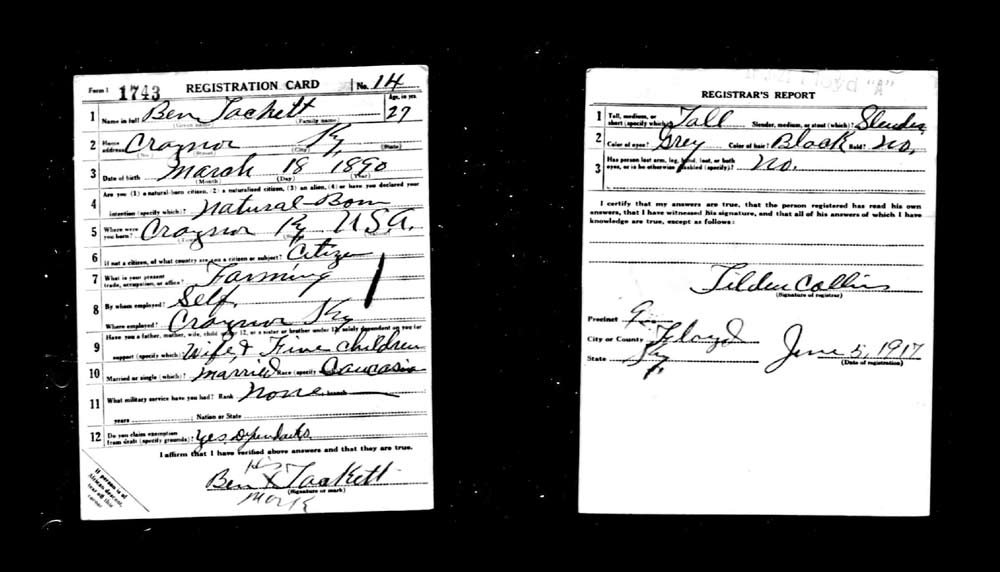 Form 1 1743 REGISTRATION CARD No. 14
1 Name in full Ben Tackett Age, in yrs. 27
(Given name) (Family name)
2 Home address Craynor Ky
(No.) (Street) (City) (State)
3 Date of birth March 18 1890
(Month) (Day) (Year)
4 Are you (1) a natural-born citizen, (2) a naturalized citizen, (3) an alien, (4) or have you declared your
intention (specify which)? Natural-Born
5 Where were you born? Craynor Ky U.S.A.
6 If not a citizen, of what country are you a citizen or subject? Citizen
7 What is your present trade, occupation, or office? Farming
8 By whom employed? Self
Where employed? Craynor Ky
9 Have you a father, mother, wife, child under 12, or a sister or brother under 12, solely dependent on you for
support (specify which)? Wife & Five children
10 Married or single (which)? Married Race (specify which)? Caucasin
11 What military service have you had? Rank None branch
years Nation or State
12 Do you claim exemption from draft (specify grounds)? Yes, Dependants
I affirm that I have verified above answers and that they are true.
His
Ben X Tackett
(Signature or mark)
Mark
If person is of African descent, tear off this corner
"A"
REGISTRAR'S REPORT
1 Tall, medium, or short (specify which)? Tall Slender, medium, or stout (which)? Slender
2 Color of eyes? Grey Color of hair? Black Bald? No.
3 Has person lost arm, leg, hand, foot, or both eyes, or is he otherwise disabled (specify)? No.
I certify that my answers are true, that the person registered has read his own
answers, that I have witnessed his signature, and that all of his answers of which I have
knowledge are true, except as follows:
Tilden Collins
(Signature of registrar)
Precinct
City or County Floyd
State Ky
June 5, 1917
(Date of registration)